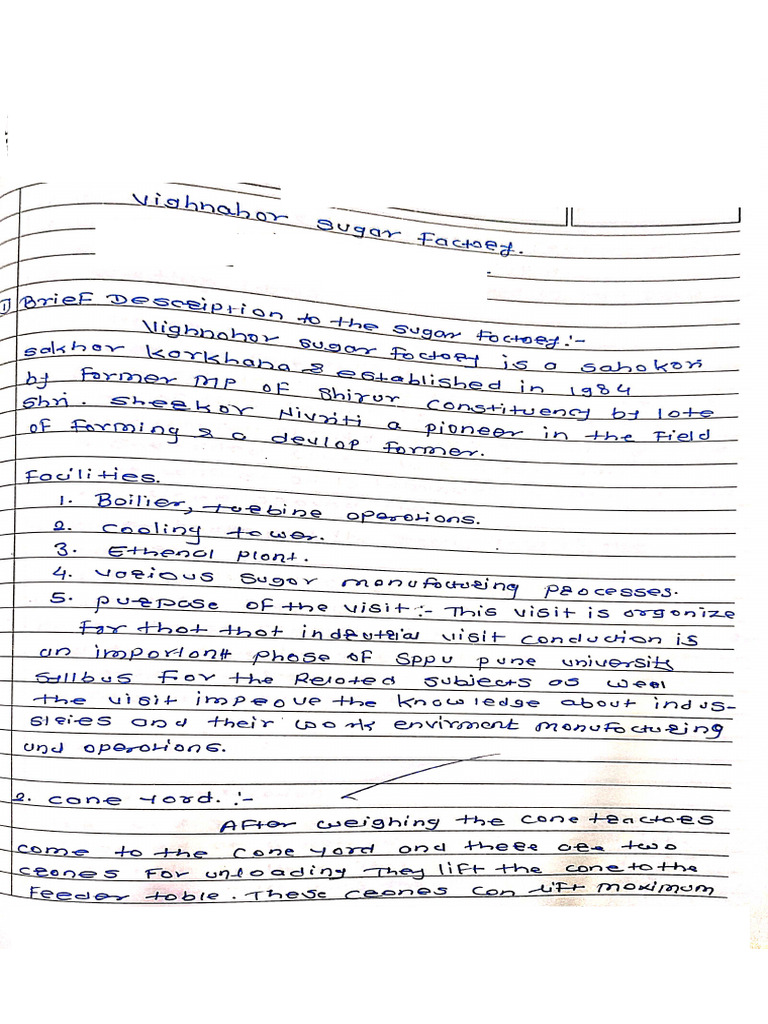 Vighnahor Sugar Factory.
1) Brief Description to the Sugar Factory:-
Vighnahor Sugar factory is a sahokori
sakhor Korkhana & established in 1984
by former MP of Shirur constituency by lote
Shri. Sheekor Nivriti a pioneer in the Field
of forming & a devlop former.
Facilities.
1. Boilier, turbine operotions.
2. Cooling tower.
3. Ethenol plont.
4. vorious sugar monufocturing processes.
5. purpose of the visit:- This visit is orgonize
for thot thot indeutrial visit conduction is
an importont phose of SPPU pune university
syllbus for the Reloted subjects os weel
the visit improve the knowledge about indus-
steies and their work envirment monufocturing
und operotions.
2. cone Yord. :-
After weighing the cone tractors
come to the cone yord and there are two
crones for unloading They lift the cone to the
Feeder toble. These crones con lift moximum